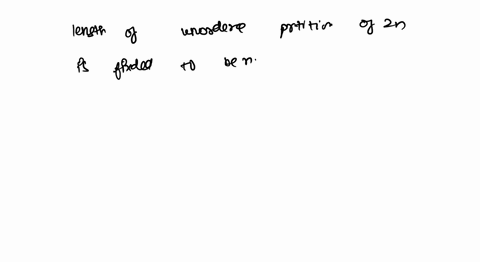 length of unordere prtition of 2n
is fixded to be n.